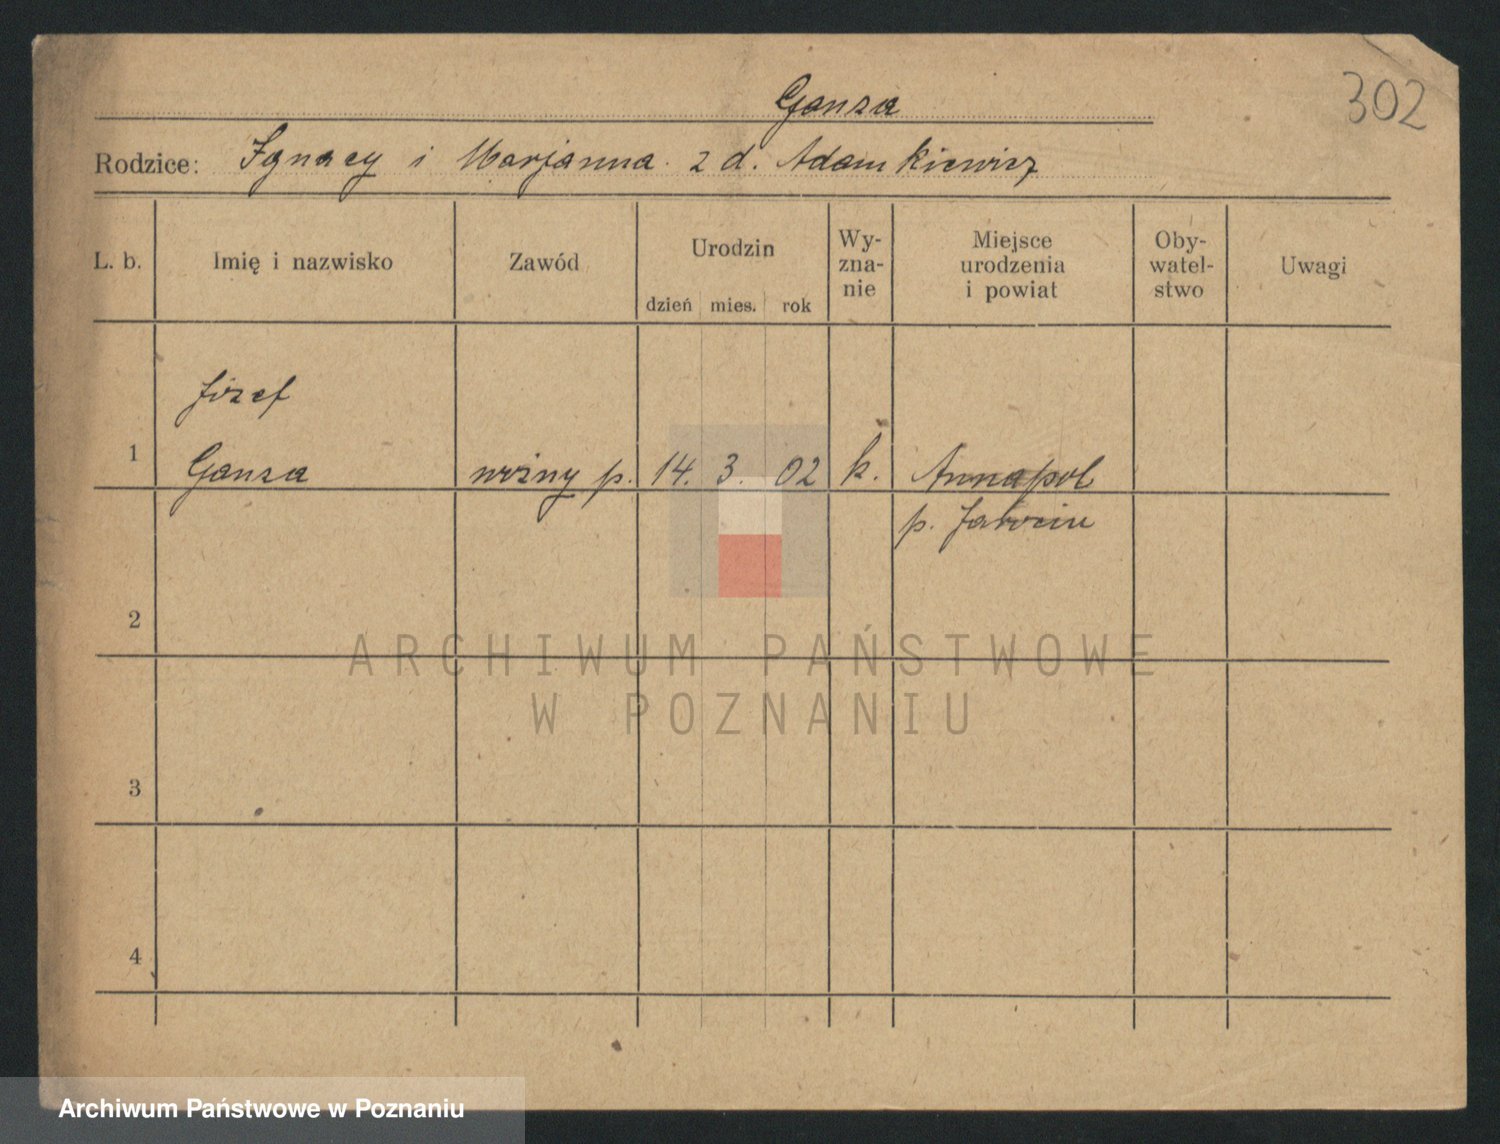 Ganza
302
Rodzice: Ignacy i Marjanna z d. Adamkiewicz
L. b. Imię i nazwisko Zawód Urodzin dzień mies. rok Wy-zna-nie Miejsce urodzenia i powiat Oby-watel-stwo Uwagi
Józef
1 Ganza woźny p. 14. 3. 02 k. Annapol
p. Jarocin
2
ARCHIWUM PAŃSTWOWE
W POZNANIU
3
4
Archiwum Państwowe w Poznaniu